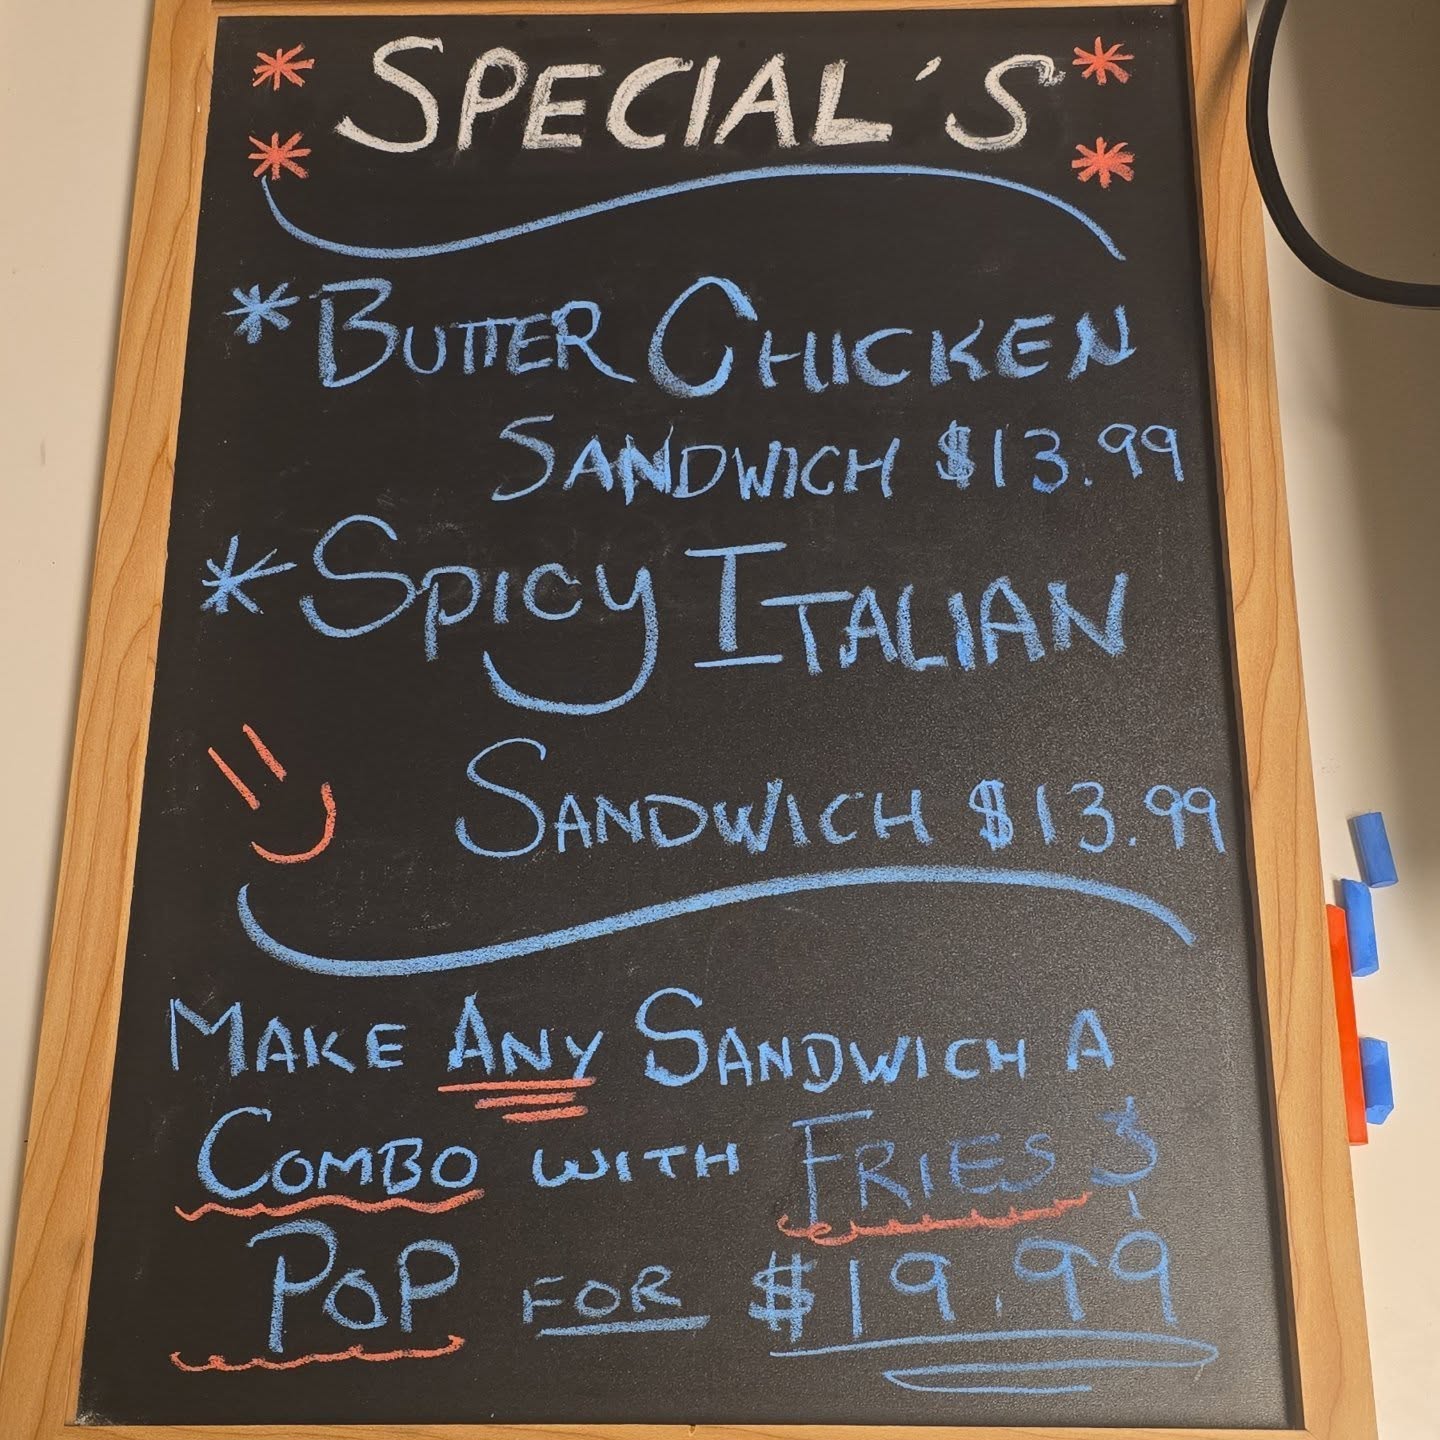 SPECIAL'S
*BUTTER CHICKEN
SANDWICH $13.99
*SPICY ITALIAN
SANDWICH $13.99
MAKE ANY SANDWICH A
COMBO WITH FRIES &
POP FOR $19.99